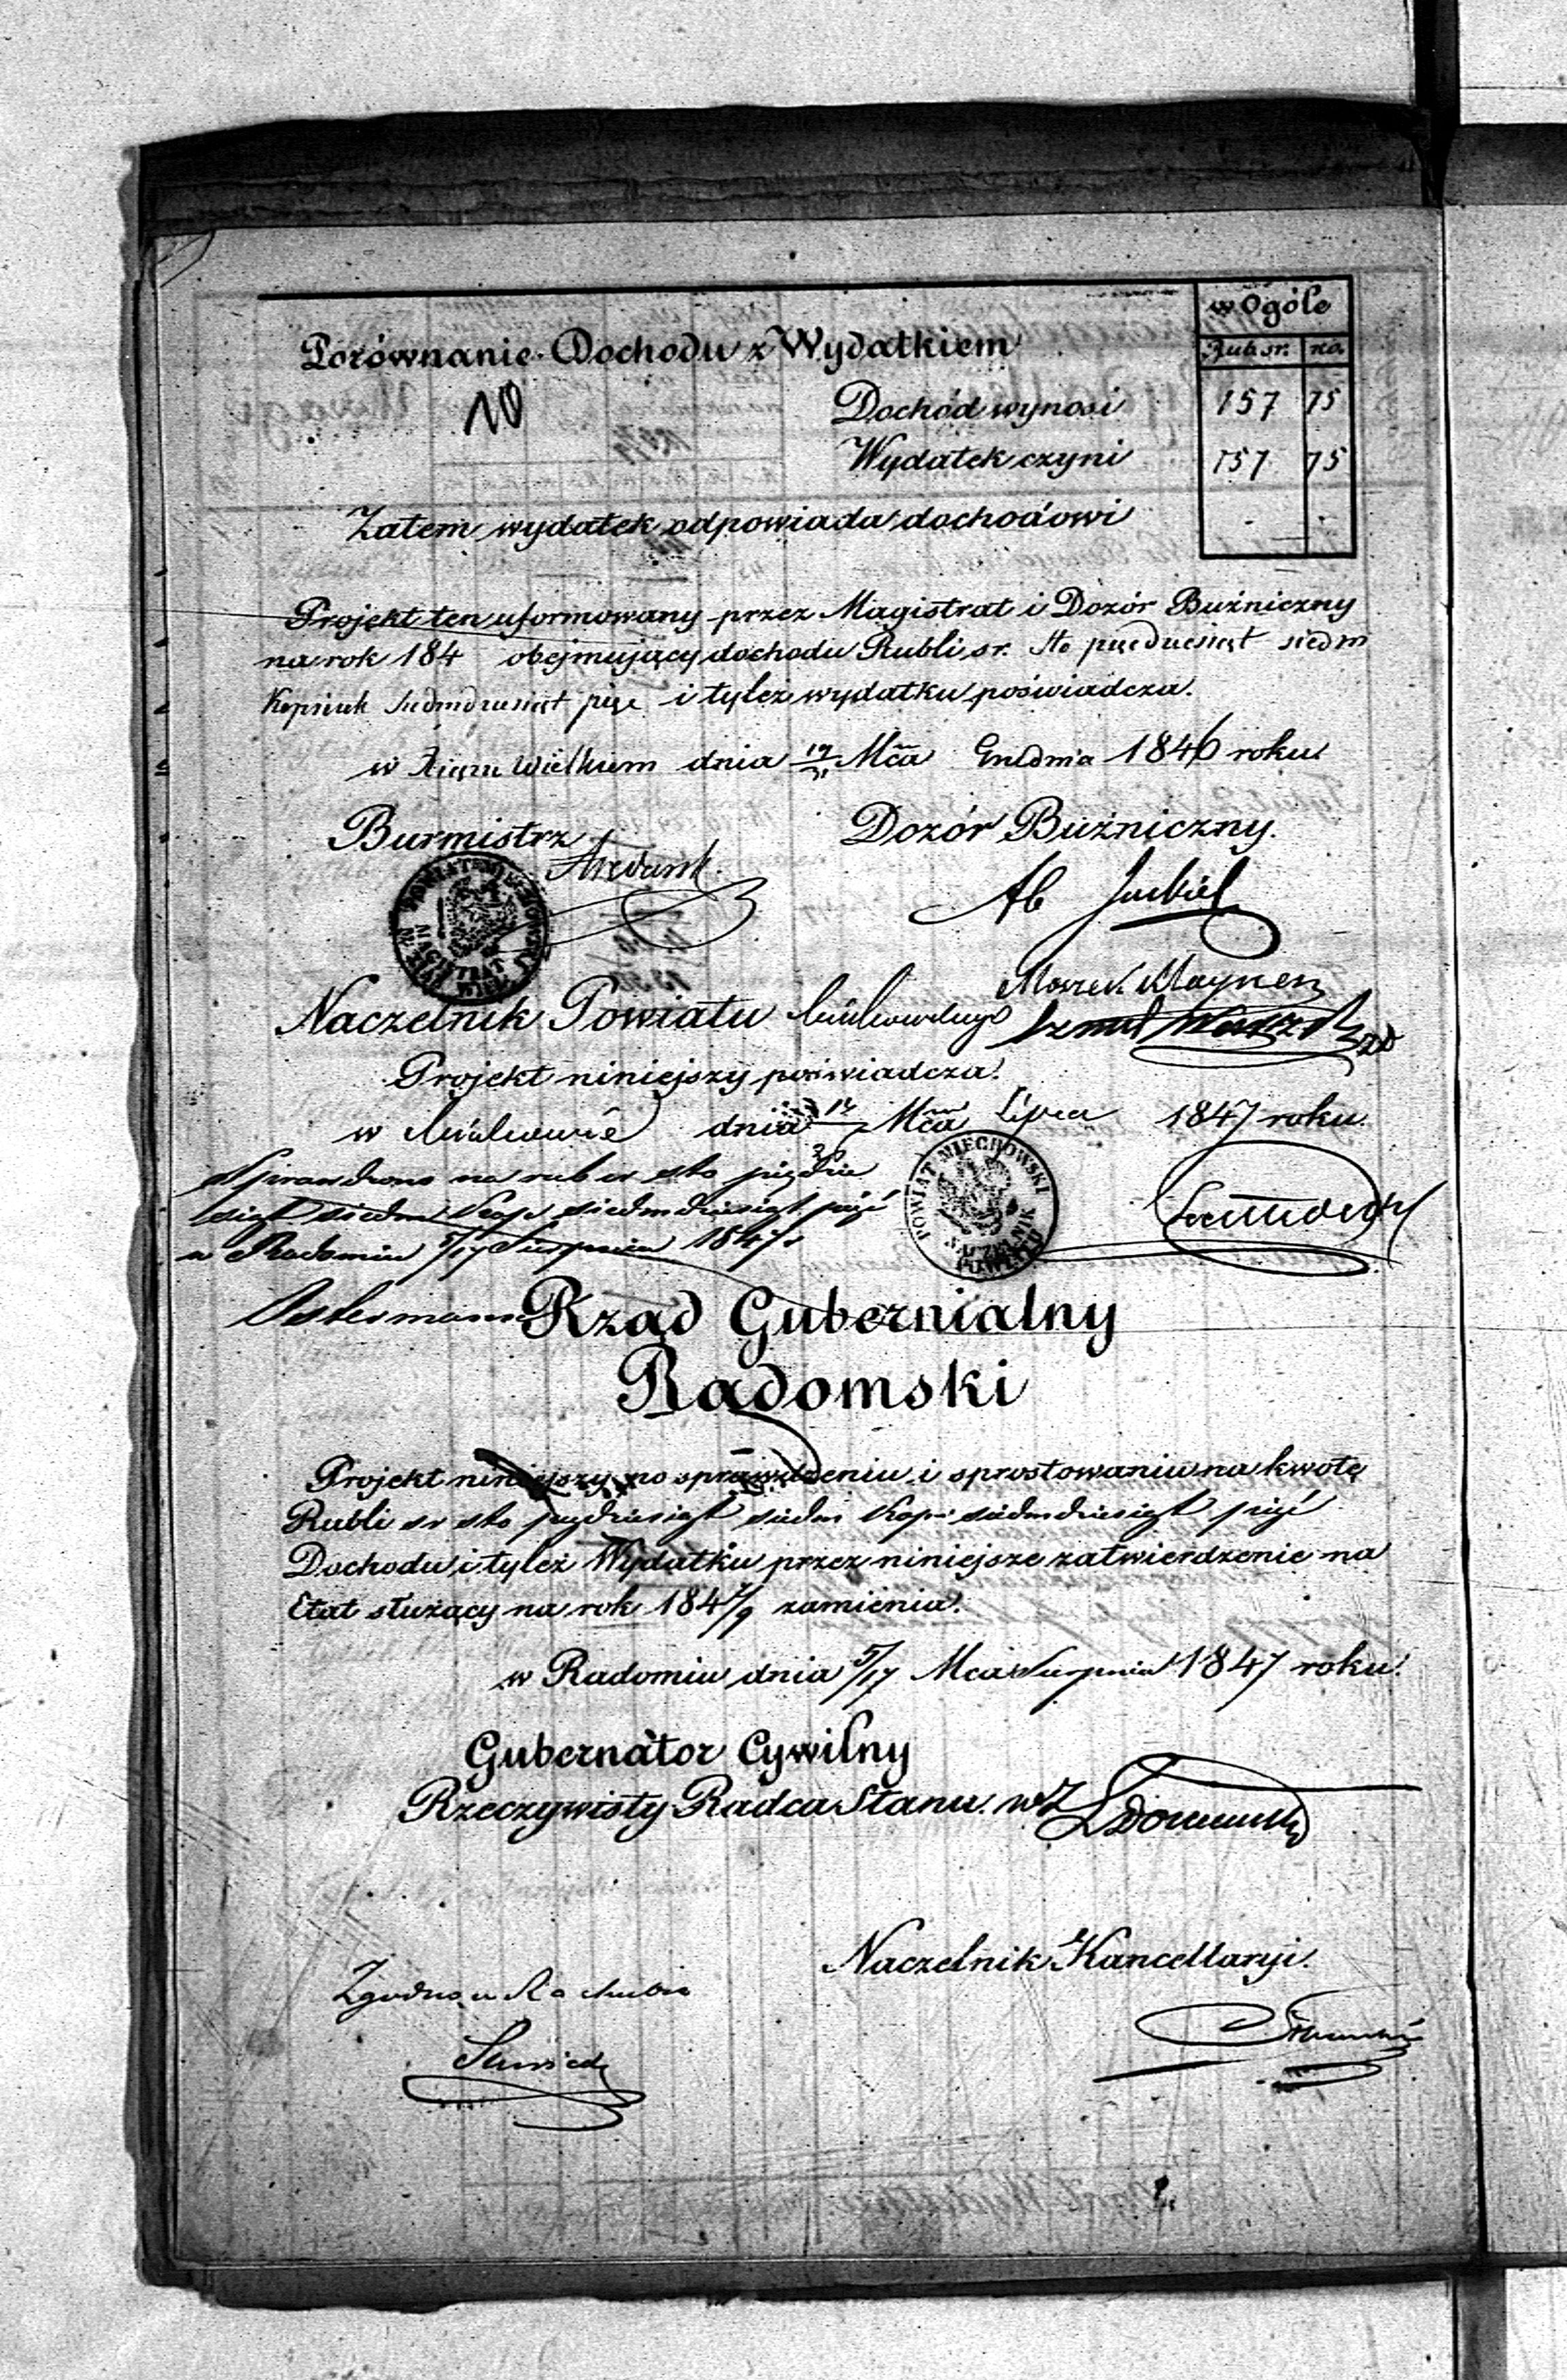 w Ogóle
Porównanie Dochodu z Wydatkiem
Rub sr. ko.
10
Dochód wynosi 157 75
Wydatek czyni 157 75
Zatem wydatek odpowiada dochodowi - -
Projekt ten uformowany przez Magistrat i Dozór Bużniczny
na rok 184 obejmujący dochodu Rubli sr. sto pięćdziesiąt siedm
Kopiiek siedmdziesiąt pięć i tyleż wydatku poświadcza.
w Xiążu Wielkiem dnia 19/31 Mca Grudnia 1846 roku
Burmistrz
Dozór Bużniczny.
Ab Jackiel
POWIAT MIECHOWSKI MAGISTRAT
Moszek Mayner
Naczelnik Powiatu Miechowskiego
Szmul
Projekt niniejszy poświadcza.
w Miechowie dnia Mca Lipca 1847 roku.
Sprawdzono na rub sr sto pięćdzie
siąt siedm Kop. siedmdziesiąt pięć
w Radomiu 5/17 Sierpnia 1847 r
POWIAT MIECHOWSKI NACZELNIK POWIATU
Ostermann
Rząd Gubernialny
Radomski
Projekt niniejszy po sprawdzeniu i sprostowaniu na kwotę
Rubli sr sto pięćdziesiąt siedm kop. siedmdziesiąt pięć
Dochodu i tyleż Wydatku przez niniejsze zatwierdzenie na
Etat służący na rok 1847/9 zamienia.
w Radomiu dnia 5/17 Mca Sierpnia 1847 roku.
Gubernator Cywilny
Rzeczywisty Radca Stanu. wZ
Naczelnik Kancellaryi.
Zgodno w Rachubie